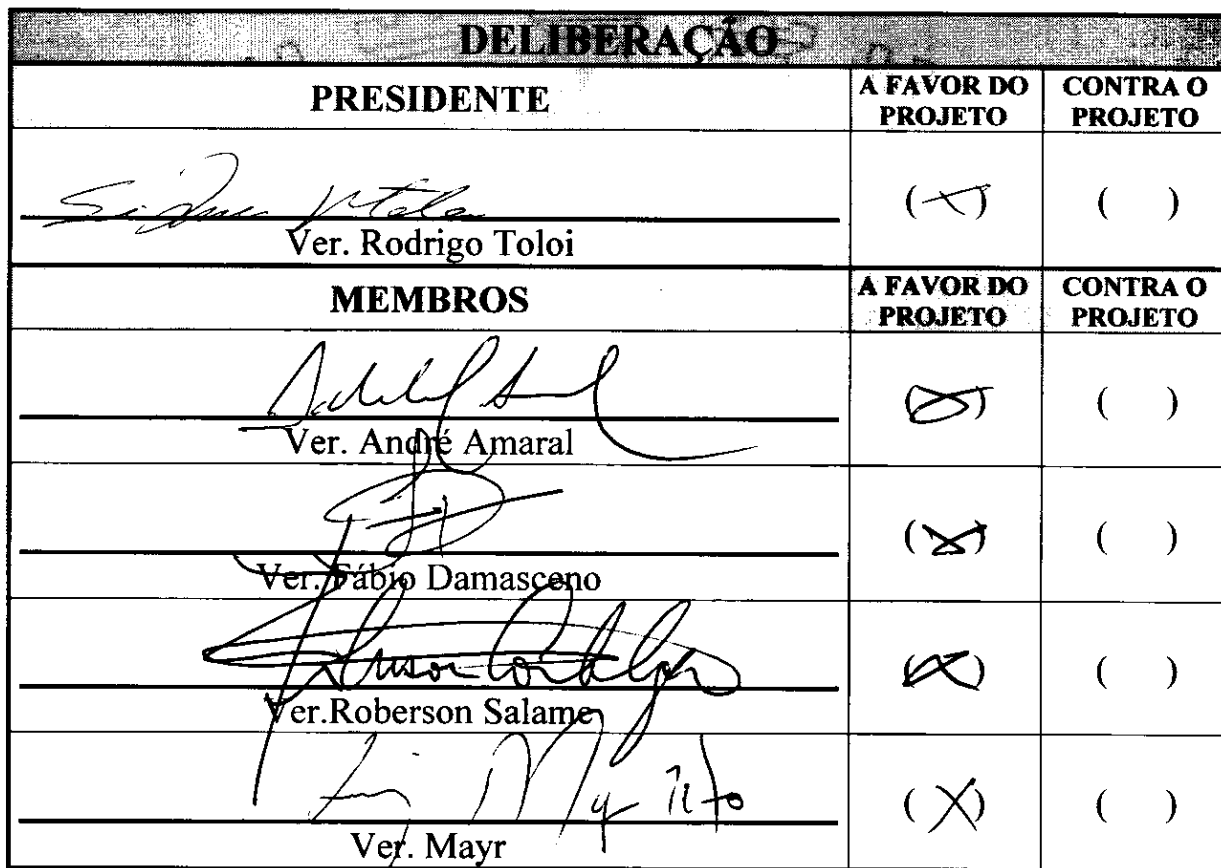 DELIBERAÇÃO
PRESIDENTE
A FAVOR DO PROJETO
CONTRA O PROJETO
( X )
( )
Ver. Rodrigo Toloi
MEMBROS
A FAVOR DO PROJETO
CONTRA O PROJETO
( X )
( )
Ver. André Amaral
( X )
( )
Ver. Fábio Damasceno
( X )
( )
Ver.Roberson Salame
( X )
( )
Ver. Mayr